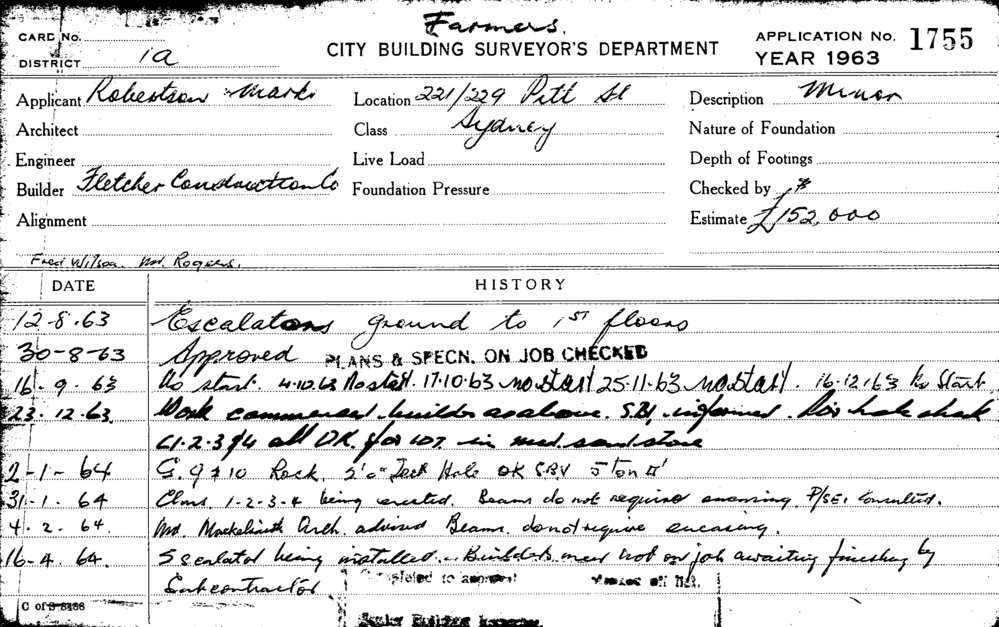 Farmers.
CARD No.
CITY BUILDING SURVEYOR'S DEPARTMENT
APPLICATION No. 1755
DISTRICT 1a
YEAR 1963
Applicant Robertson Marks
Location 221/229 Pitt St
Description Minor
Architect
Class Sydney
Nature of Foundation
Engineer
Live Load
Depth of Footings
Builder Fletcher Construction Co
Foundation Pressure
Checked by
Alignment
Estimate £152,000
Fred Wilson. Mr. Rogers.
DATE
HISTORY
12-8.63 Escalators ground to 1ST floors
30-8-63 Approved PLANS & SPECN. ON JOB CHECKED
16-9-63 No start. 4.10.63 No start. 17.10.63 no start 25.11.63 no start. 16.12.63 No Start
23.12.63. Work commenced builder as above. S.B.I. informed.
C1.2.3 all OK. for in med. sandstone
2-1-64 9 & 10 Rock. 2'0" Test Hole OK
31-1-64 Clms. 1-2-3-4 being erected. Beams do not require encasing. Consulted.
4.2.64. Mr. Arch. advised Beams do not require encasing.
16-4.64. Escalator being installed. Builders men not on job awaiting finishing by
Subcontractor
Completed to approval
Senior Building Inspector
C of S